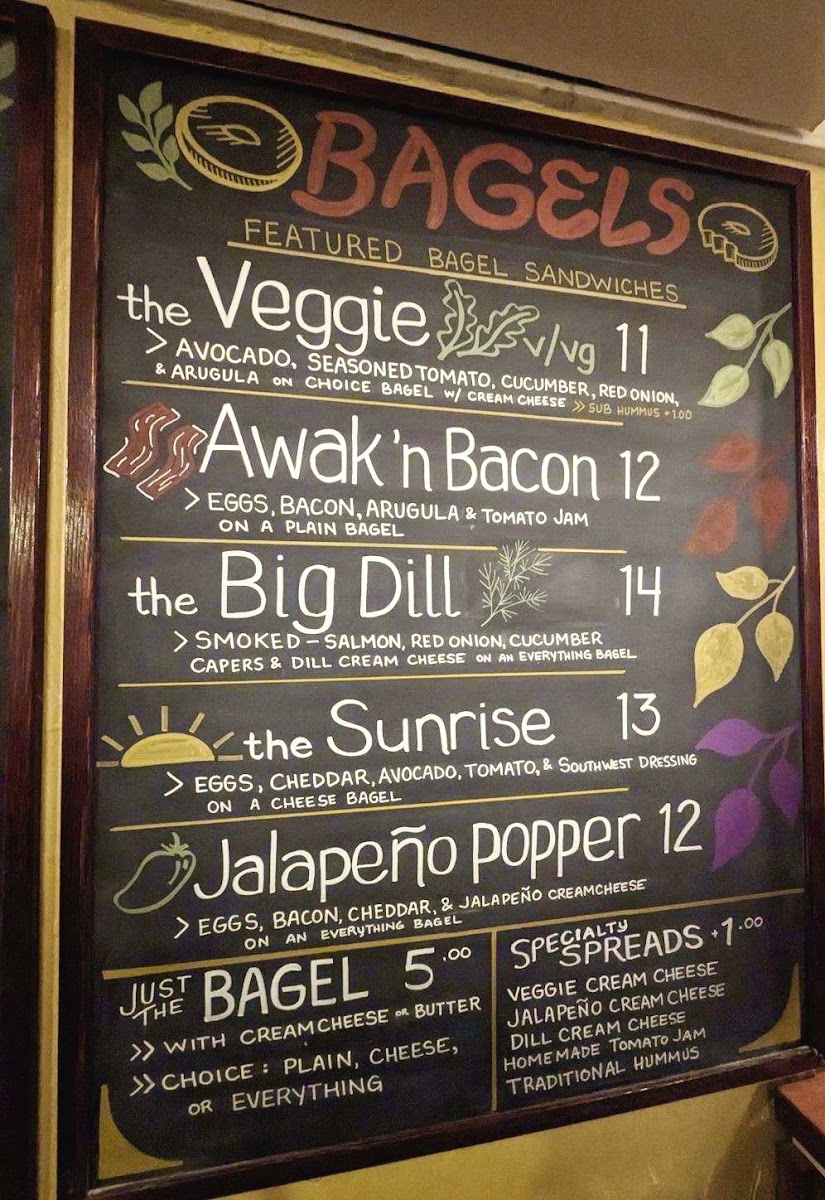 BAGELS
FEATURED BAGEL SANDWICHES
the Veggie v/vg 11
> AVOCADO, SEASONED TOMATO, CUCUMBER, RED ONION,
& ARUGULA ON CHOICE BAGEL W/ CREAM CHEESE >> SUB HUMMUS +1.00
Awak'n Bacon 12
> EGGS, BACON, ARUGULA & TOMATO JAM
ON A PLAIN BAGEL
the Big Dill 14
> SMOKED-SALMON, RED ONION, CUCUMBER
CAPERS & DILL CREAM CHEESE ON AN EVERYTHING BAGEL
the Sunrise 13
> EGGS, CHEDDAR, AVOCADO, TOMATO, & SOUTHWEST DRESSING
ON A CHEESE BAGEL
Jalapeño popper 12
> EGGS, BACON, CHEDDAR, & JALAPEÑO CREAMCHEESE
ON AN EVERYTHING BAGEL
JUST THE BAGEL 5.00
>> WITH CREAMCHEESE OR BUTTER
>> CHOICE: PLAIN, CHEESE,
OR EVERYTHING
SPECIALTY
SPREADS +1.00
VEGGIE CREAM CHEESE
JALAPEÑO CREAM CHEESE
DILL CREAM CHEESE
HOMEMADE TOMATO JAM
TRADITIONAL HUMMUS